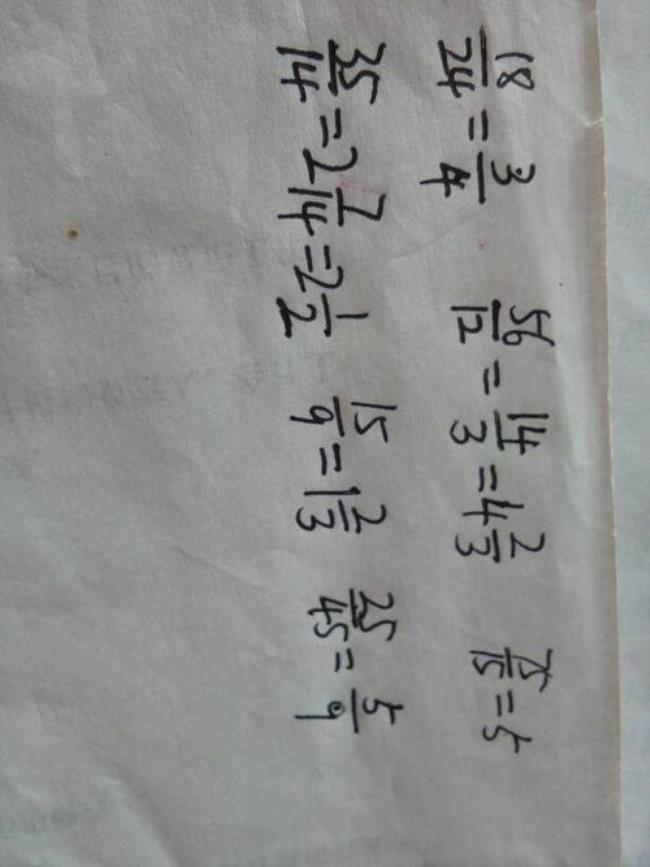 18/24 = 3/4 56/12 = 14/3 = 4 2/3 75/15 = 5
35/14 = 2 7/14 = 2 1/2 15/9 = 1 2/3 25/45 = 5/9